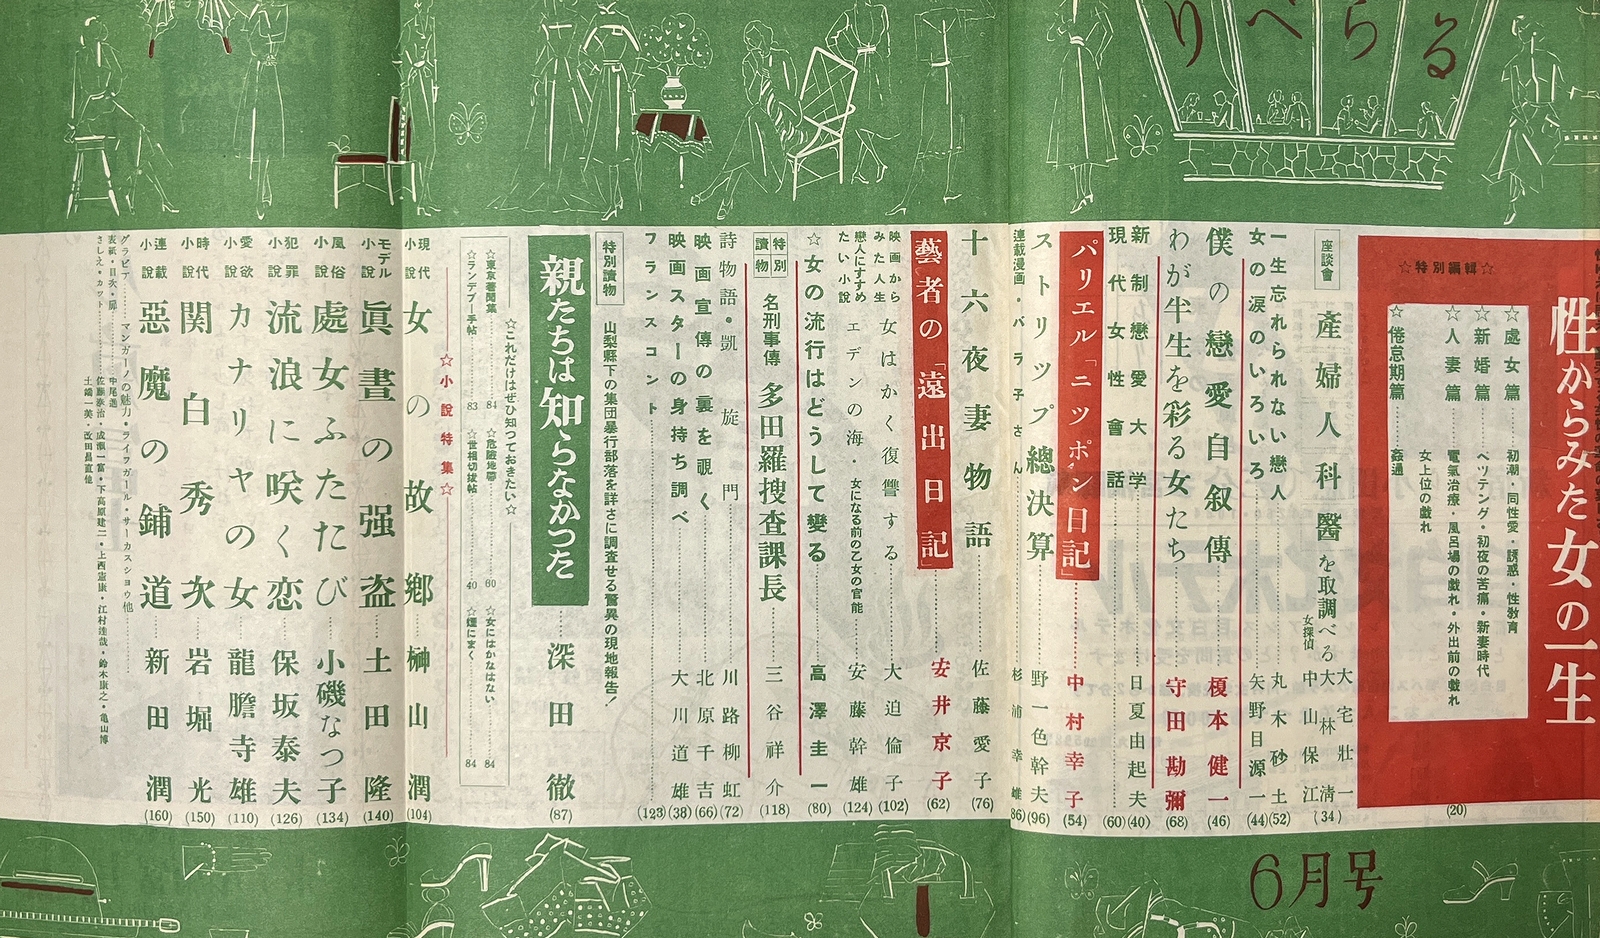 りべらる
性からみた女の一生
☆特別編輯☆
☆處女篇……初潮・同性愛・誘惑・性教育
☆新婚篇……ペツテング・初夜の苦痛・新妻時代
☆人妻篇……電氣治療・風呂場の戯れ・外出前の戯れ
女上位の戯れ
☆倦怠期篇……姦通
(20)
座談會
產婦人科醫を取調べる
大宅壯一
大林清
中山保江
女探偵
(34)
一生忘れられない戀人……丸木砂土(52)
女の涙のいろいろ……矢野目源一(44)
僕の戀愛自叙傳……榎本健一(46)
わが半生を彩る女たち……守田勘彌(68)
新制戀愛大学……日夏由起夫(40)
現代女性會話……(60)
パリエル「ニツポン日記」……中村幸子(54)
ストリツプ總決算……野一色幹夫(96)
連載漫画・バラ子さん……杉浦幸雄(86)
十六夜妻物語……佐藤愛子(76)
藝者の「遠出日記」……安井京子(62)
映画からみた人生
女はかく復讐する……大迫倫子(102)
戀人にすすめたい小說
エデンの海・女になる前の乙女の官能……安藤幹雄(124)
☆女の流行はどうして變る……高澤圭一(80)
特別讀物
名刑事傳
多田羅搜査課長……三谷祥介(118)
詩物語・凱旋門……川路柳虹(72)
映画宣傳の裏を覗く……北原千吉(66)
映画スターの身持ち調べ……大川道雄(38)
フランスコント……(123)
特別讀物
山梨縣下の集団暴行部落を詳さに調査せる驚異の現地報告!
親たちは知らなかつた……深田徹(87)
☆これだけはぜひ知つておきたい☆
☆東京著聞集……84
☆危險地帶……60
☆女にはかなはない……84
☆ランデブー手帖……83
☆世相切拔帖……40
☆煙にまく……84
☆小說特集☆
現代小說
女の故鄕……榊山潤(104)
モデル小說
眞晝の强盗……土田隆(140)
風俗小說
處女ふたたび……小磯なつ子(134)
犯罪小說
流浪に咲く恋……保坂泰夫(126)
愛欲小說
カナリヤの女……龍膽寺雄(110)
時代小說
関白秀次……岩堀光(150)
連載小說
惡魔の鋪道……新田潤(160)
グラビア……マンガーノの魅力・ライフガール・サーカスショウ他
表紙・目次・扉……中尾進
さしえ・カット……佐藤泰治・成瀬一富・下高原健二・上西憲康・江村洼哉・鈴木康之・亀山博
土端一美・改田昌直他
6月号